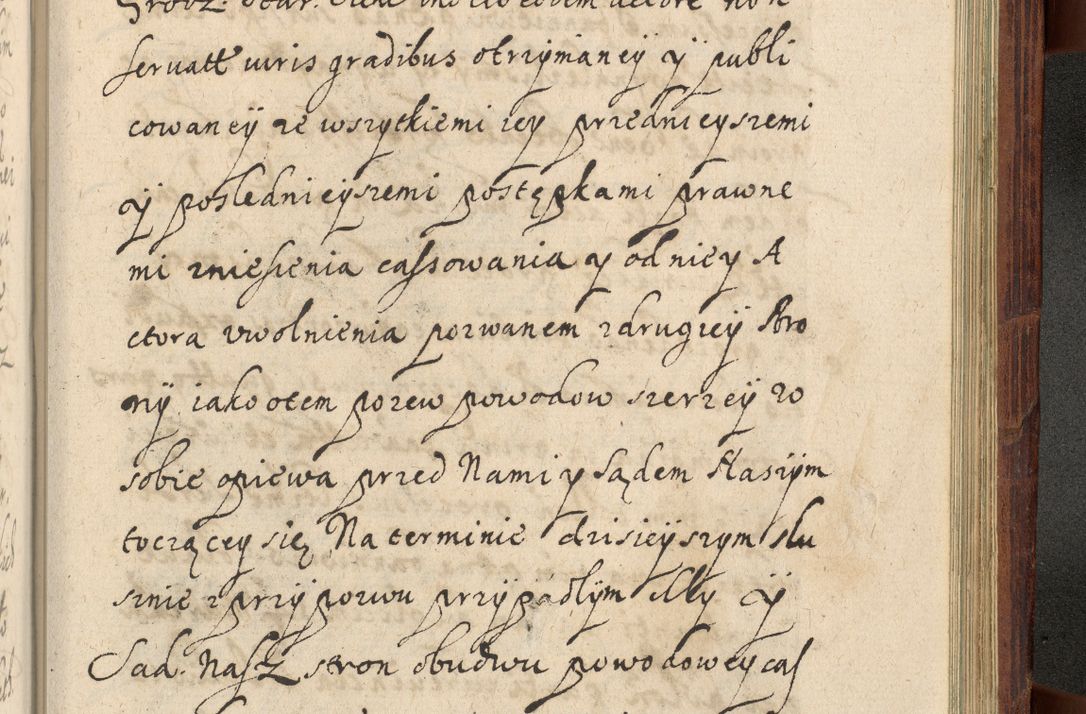 servatt viris gradibus otrzymaneÿ ÿ publi
cowaneÿ ze wszytkiemi iey przednieyszemi
ÿ poslednieyszemi postępkami prawne
mi zniesienia cassowania y od niey A
ctora vwolnienia pozwanem zdrugieÿ stro
nÿ iako otem pozew powodow szerzeÿ w
sobie opiewa przed Nami y Sądem Naszÿm
toczącey się Na terminie dzisieÿszym słu
sznie z przÿpozwu przÿpadłÿm Mÿ ÿ
Sad. Nasz stron obudwu powodowey cas